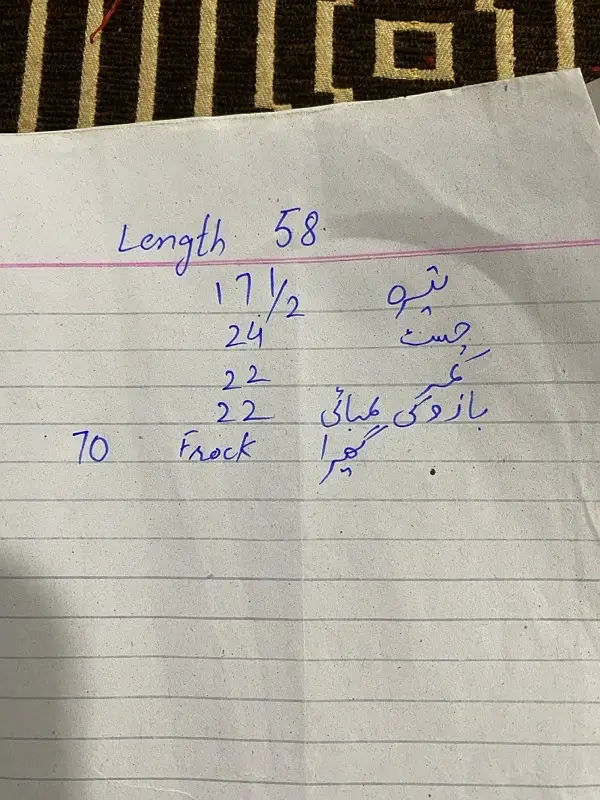 Length 58
17 1/2 تیرہ
24 چست
22 کمر
22 بازو کی لمبائی
70 Frock گھیرا